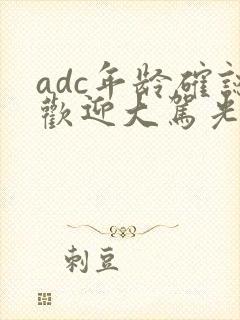 adc年龄確認
歡迎大駕光
刺豆